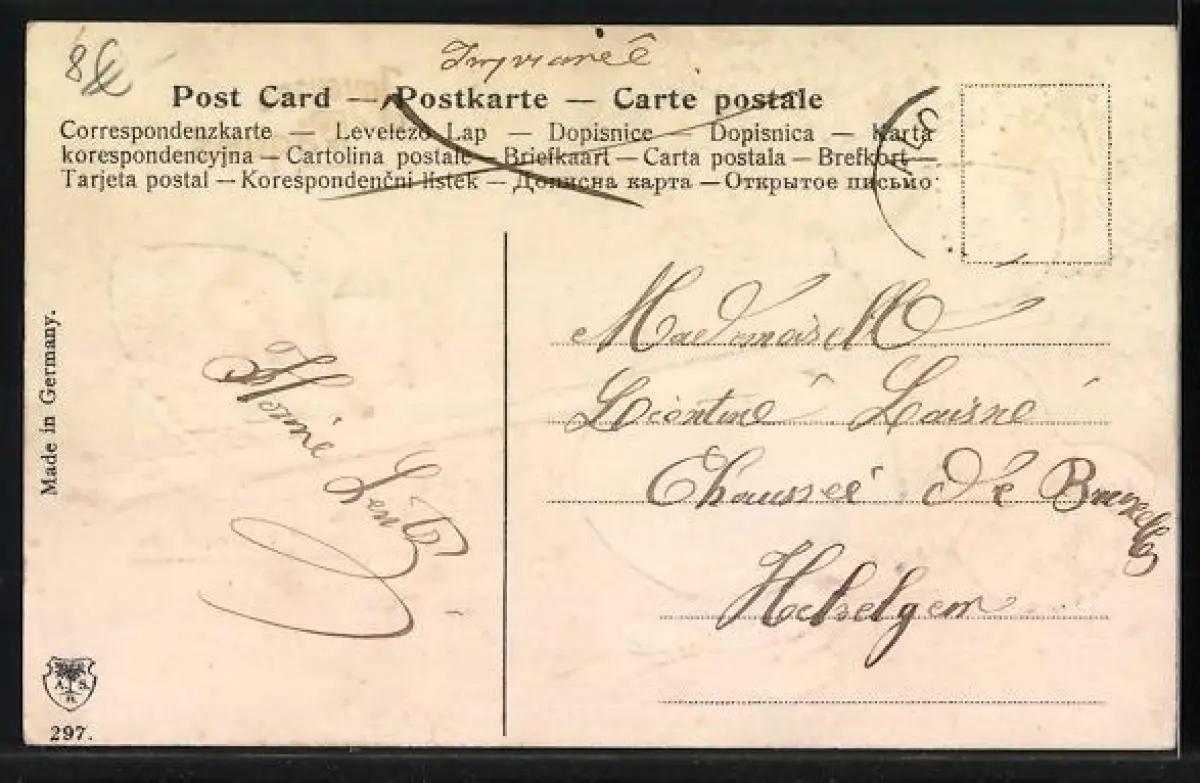 Post Card — Postkarte — Carte postale
Correspondenzkarte — Levelező-Lap — Dopisnice — Dopisnica — Karta
korespondencyjna — Cartolina postale — Briefkaart — Carta postala — Brefkort —
Tarjeta postal — Korespondenčni listek — Дописна карта — Открытое письмо
Made in Germany.
297.
Mademoiselle
Léontine
Chausseé de